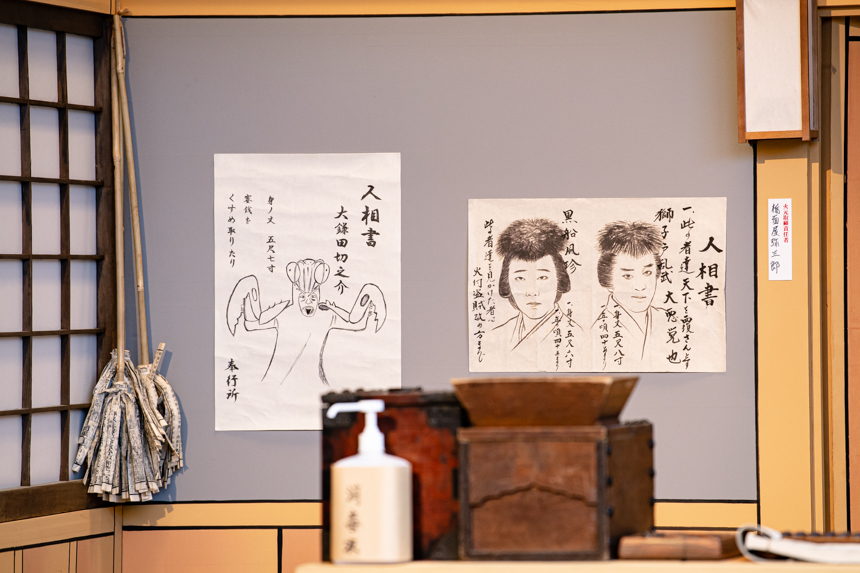 人相書
大鎌田切之介
身ノ丈 五尺七寸
くすめ取りたり
奉行所
人相書
一、此の者達天下を覆さんとす
大悪党也
一、身ノ丈五尺八寸
黒船風珍
一、身ノ丈五尺六寸
此者達を見かけた者ハ
火付盗賊改の方まで
火元取締責任者
消毒液